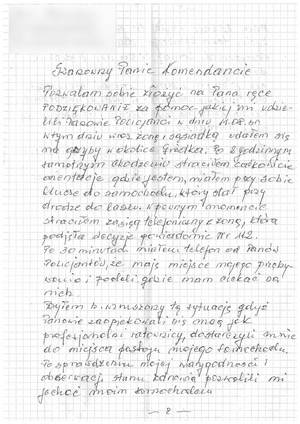 Szanowny Panie Komendancie
Pozwalam sobie złożyć na Pana ręce
PODZIĘKOWANIE za pomoc jakiej mi udzie-
lili Panowie Policjanci w dniu
W tym dniu wraz z żoną i sąsiadką udałem się
na grzyby w okolice Gródka. Po 2 godzinnym
samotnym chodzeniu straciłem całkowicie
orientację gdzie jestem, miałem przy sobie
klucze do samochodu, który stał przy
drodze do lasu. W pewnym momencie
straciłem zasięg telefoniczny z żoną, która
podjęła decyzję powiadomić Nr 112.
Po 30 minutach miałem telefon od Panów
Policjantów, że mają miejsce mojego przeby-
wania i podali gdzie mam czekać na
nich.
Byłem b. wzruszony tą sytuacją gdyż
Panowie zaopiekowali się mną jak
profesjonalni ratownicy, dostarczyli mnie
do miejsca postoju mojego samochodu.
Po sprawdzeniu mojej wiarygodności i
obserwacji stanu zdrowia pozwolili mi
jechać moim samochodem
— 2 —